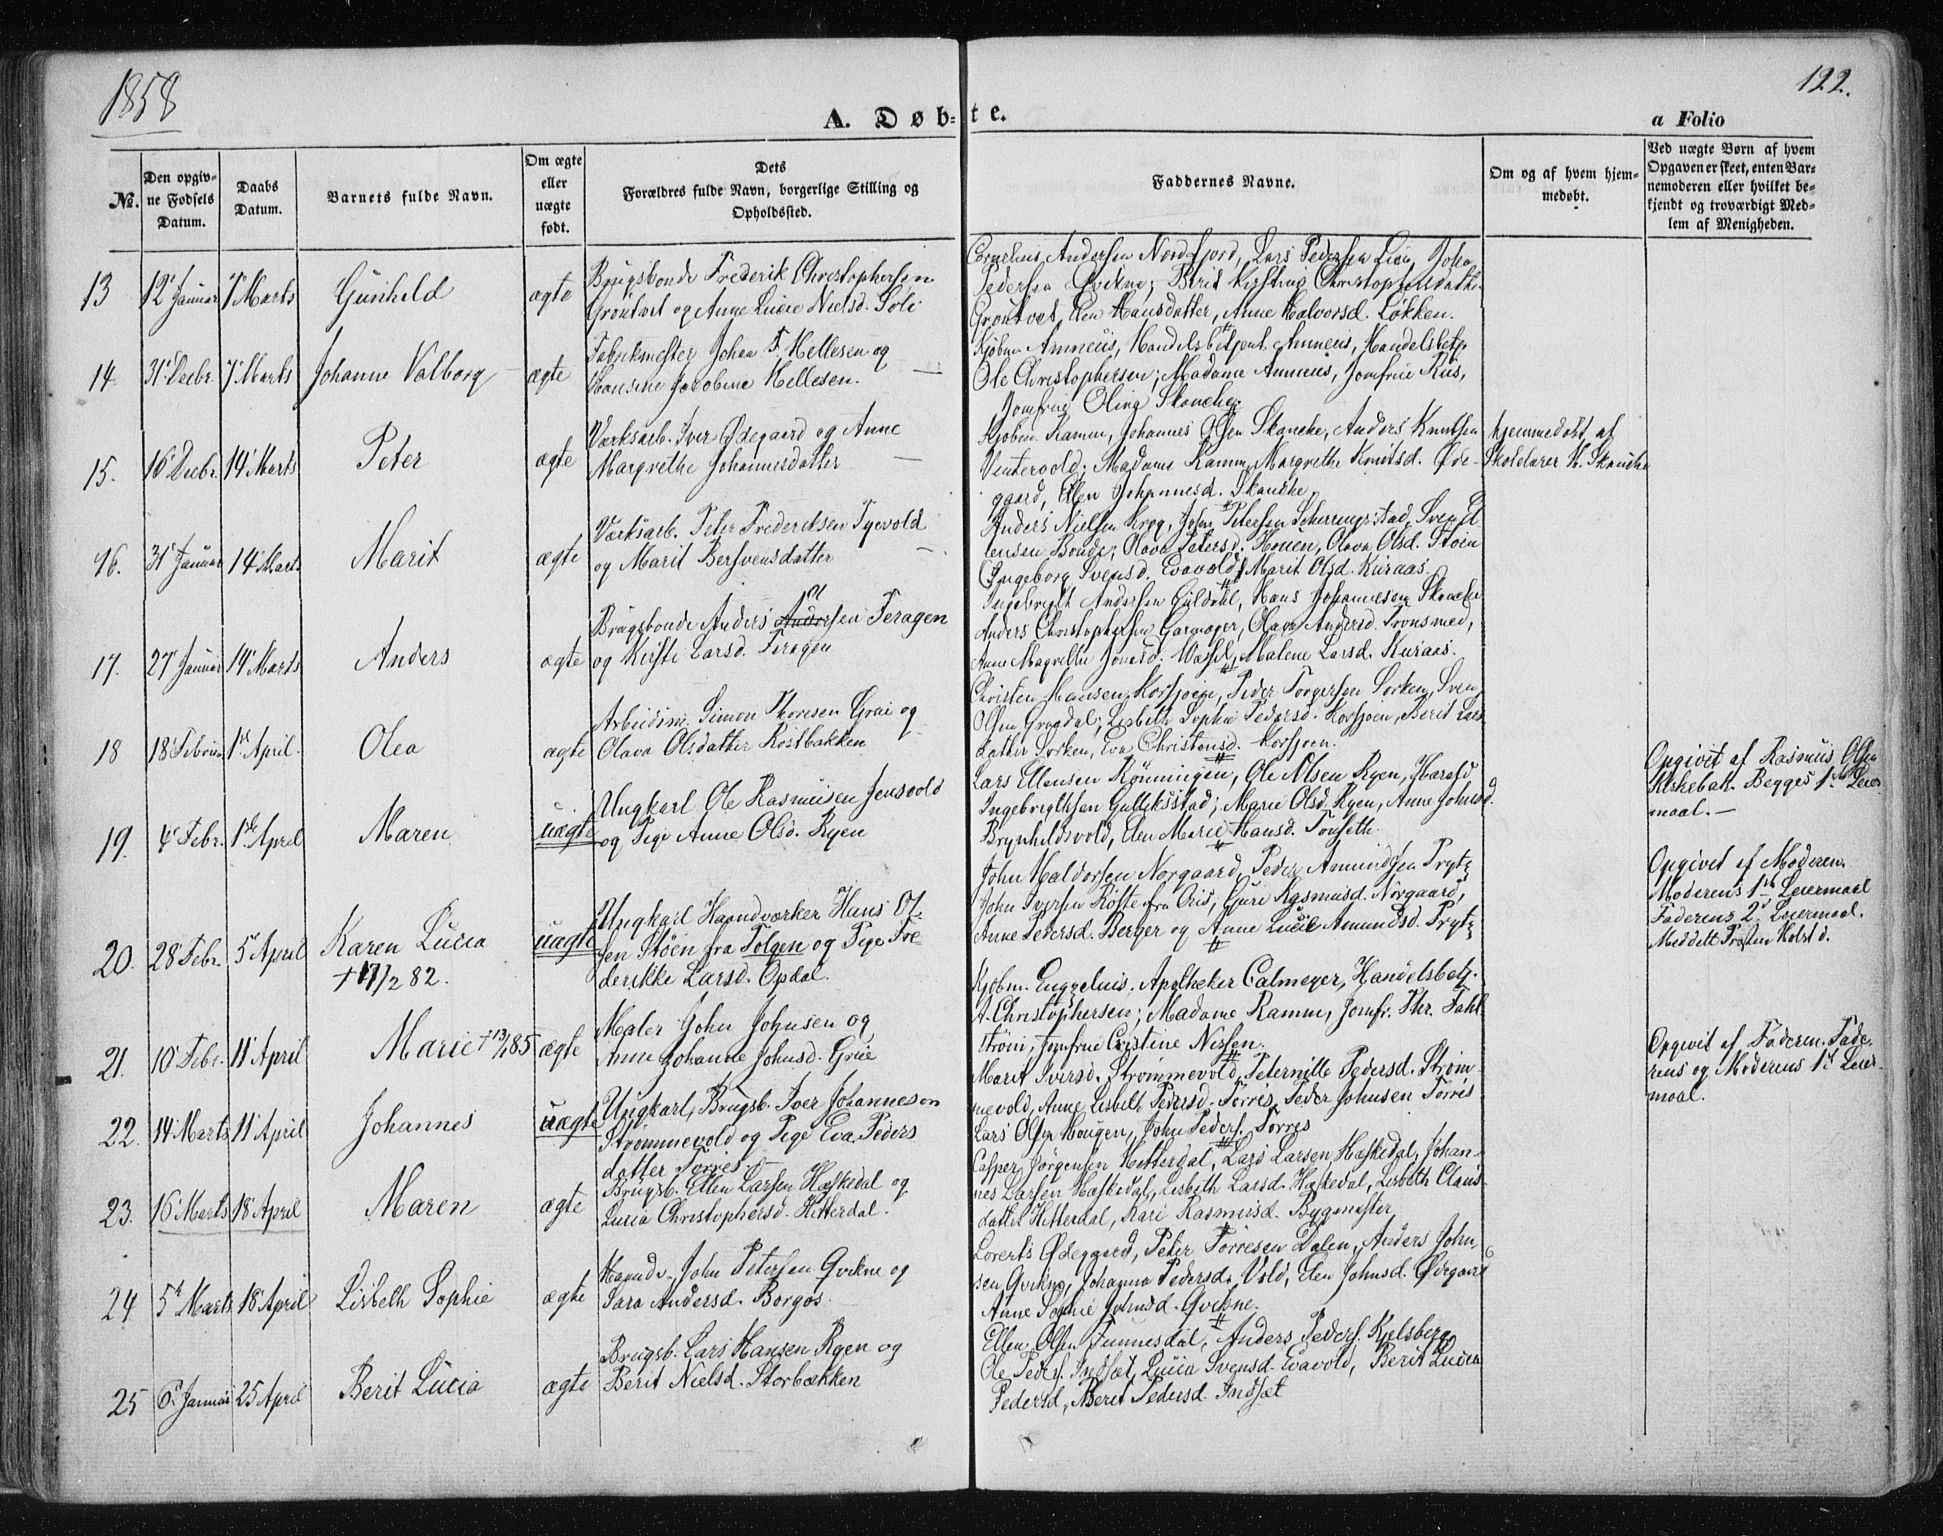 1858
122.
A. Døb-te.
a Folio
No.
Den opgiv-
ne Fødsels
Datum.
Daabs
Datum.
Barnets fulde Navn.
Om ægte
eller
uægte
født.
Dets
Forældres fulde Navn, borgerlige Stilling og
Opholdssted.
Faddernes Navne.
Om og af hvem hjem-
medøbt.
Ved uægte Børn af hvem
Opgaven er skeet, enten Bar-
nemoderen eller hvilket be-
kjendt og troværdigt Med-
lem af Menigheden.
13 12 Januar 7 Marts Gunhild ægte
Brugsbonde Frederik Christophersen
Grøntvet og Anne Lucie Nielsd. Soli
Cornelius Andersen Nordfjord, Lars Pedersen Lien, John
Pedersen Qvikne; Berit Kirstine Christophersdatter
Grøntvet, Elen Hansdatter, Anne Halvorsd. Løkken.
14. 31 Decbr. 7 Marts Johanne Valborg ægte
Fabrikmester Johan F. Hellesen og
Hansine Jacobine Hellesen.
Kjøbm. Amneus, Handelsbetjent Amneus, Handelsbetj.
Ole Christophersen; Madame Amneus, Jomfrue
Jomfrue Oline Skancke
15. 16 Decbr. 14 Marts Peter ægte
Værksarb. Iver Ødegaard og Anne
Margrethe Johannesdatter
Kjøbm. Ramm, Johannes Olsen Skancke, Anders Knutsen
Vintervold; Madame Ramm, Margrethe Knutsd. Øde-
gaard, Elen Johannesd. Skancke.
Hjemmedøbt af
Skolelærer H. Skancke
16. 31 Januar 14 Marts Marit ægte
Værksarb. Peter Frederiksen Tyevold
og Marit Bersvensdatter
Anders Nielsen Krog, John Petersen Schjerringstad, Svend
Jensen Bonde; Olava Petersd. Houen, Olava Olsd. Støen
Ingeborg Svensd. Evavold, Marit Olsd. Kuraas.
17. 27 Januar 14 Marts Anders ægte
Brugsbonde Anders Andersen Ol Feragen
og Kirsti Larsd. Feragen
Ingebrigt Andersen Guldal, Hans Johannesen Skancke
Anders Christophersen Garmager, Olava Andersd. Tronsmed,
Anne Magrethe Jonasd. Malene Larsd. Kuraas.
18 18 Februar 1st April. Olea ægte
Arbeidsm. Simon Thoresen Grai og
Olava Olsdatter Rostbakken
Christen Hansen Korssjøen, Peder Torgersen Sorken, Sven
Olsen Graadal; Lisbeth Sophie Pedersd. Korssjøen, Berit Lars-
datter Sorken, Eva Christensd. Korssjoen.
19. 4 Febr. 1st April Maren uægte
Ungkarl Ole Rasmusen Jensvold
og Pige Anne Olsd. Ryen
Lars Ellensen Rønningen, Ole Nilsen Ryen, Harald
Ingebrigtsen Gulliksstad; Marie Olsd. Ryen, Anne Johnsd.
Brynhildsvold, Elen Marie Hansd. Tonseth.
Opgivet af Rasmus Olsen
Begges 1ste Leier
maal.
20. 28 Febr. 5 April Karen Lucia uægte
† 17/2 82.
Ungkarl Haandværker Hans Ol-
sen Støen fra Tolgen og Pige Fre-
derikke Larsd. Opdal.
John Haldorsen Norgaard, Peder Amundsen Prytz
John Iversen Røste fra Guri Rasmusd. Norgaard,
Anne Pedersd. Berger og Anne Lucie Amundsd. Prytz
Opgivet af Moderen.
Moderens 1ste Leiermaal
Faderens 2det Leiermaal.
Meddelt Provsten
21. 10 Febr. 11 April Marie † 13/1 85 ægte
Maler John Johnsen og
Anne Johanne Johnsd. Graae
Kjøbm. Apotheker Calmeyer, Handelsbetj.
A. Christophersen; Madame Ramm, Jomfr. Thr. Fahl-
strøm, Jomfrue Cristine Nissen.
22. 14 Marts 11 April Johannes uægte
Ungkarl, Brugsb. Iver Johannesen
Strømmevold og Pige Eva Peders
datter Torris
Marit Iversd. Strømmevold, Peternille Pedersd. Strøm-
mevold, Anne Lisbeth Pedersd. Torris, Peder Johnsen Torris
Lars Olsen Hougen, John Peders. Torris
Opgivet af Faderen. Fade
rens og Moderens 1st Leier-
maal.
23. 16 Marts 18 April Maren ægte
Brugsb. Ellen Larsen Hæskedal og
Lucia Christophersd. Hitterdal.
Casper Jørgensen Hitterdal, Lars Larsen Hæskedal, Johan-
nes Larsen Hæskedal, Lisbeth Larsd. Hæskedal, Lisbeth Claus-
datter Hitterdal, Kari Rasmusd. Bygmester
24 5 Marts 18 April Lisbeth Sophie ægte
Haandv. John Petersen Qvikne og
Sara Andersd. Borgos.
Lorents Ødegaard, Peter Torresen Dalen, Anders John-
sen Qvikne, Johanna Pedersd. Vold, Elen Johnsd. Ødegaard
Anne Sophie Johnsd. Qvikne.
25 6 Januar 25 April Berit Lucia ægte
Brugsb. Lars Hansen Ryen og
Berit Nielsd. Storbækken
Ellen Olsen Tunnesdal, Anders Peders. Kjelsberg
Ole Peders. Indsæt, Lucia Svensd. Evavold, Berit Lucia
Pedersd, Berit Pedersd. Indsæt